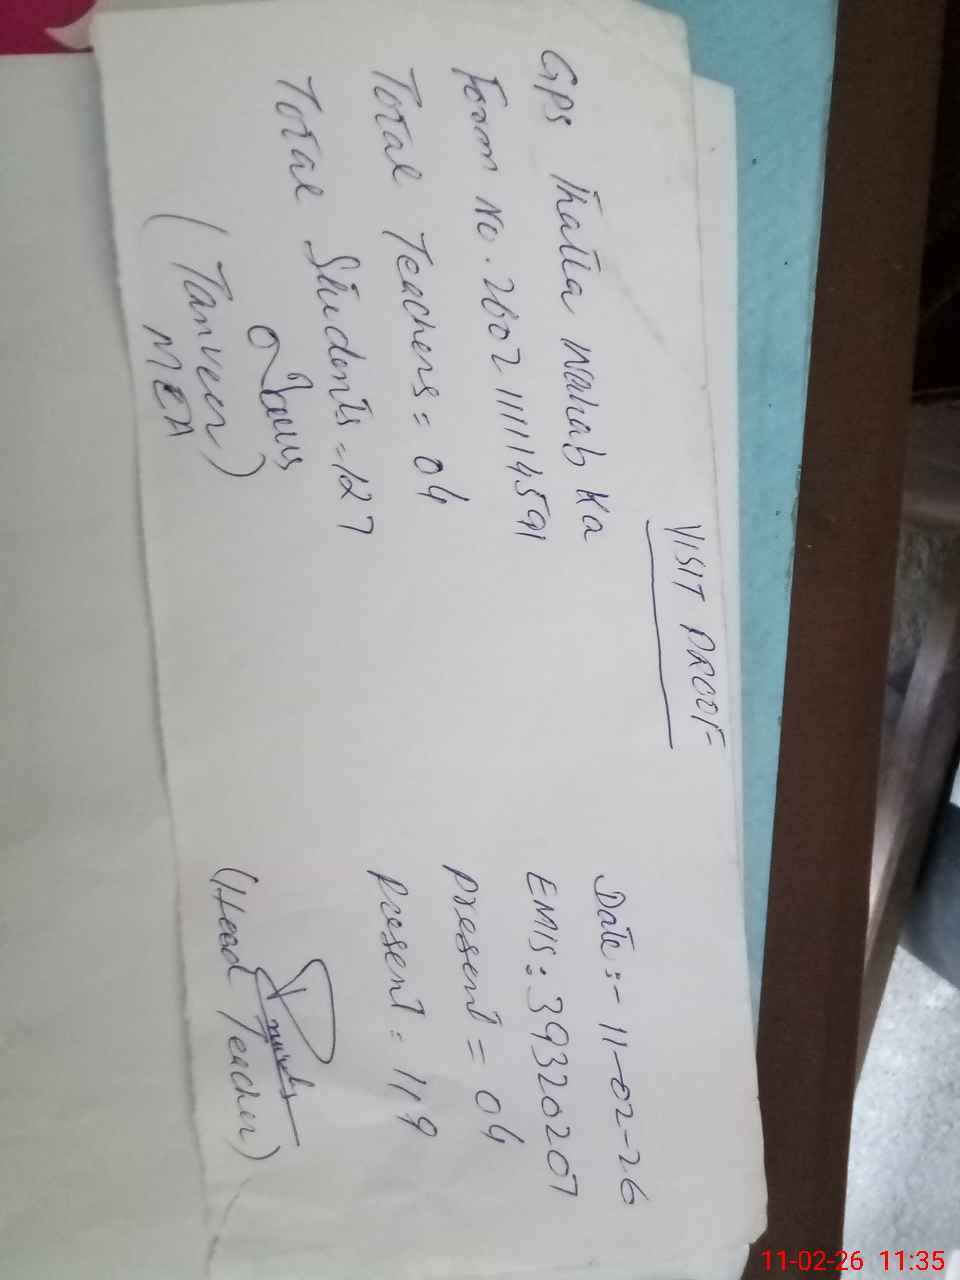 VISIT PROOF
Date:- 11-02-26
GPS Thatta Wahab Ka EMIS: 39320207
Form No. 2602111114591 Present = 04
Total Teachers = 04 Present = 119
Total Students = 127
(Tanveer) (Head Teacher)
MEA
11-02-26 11:35